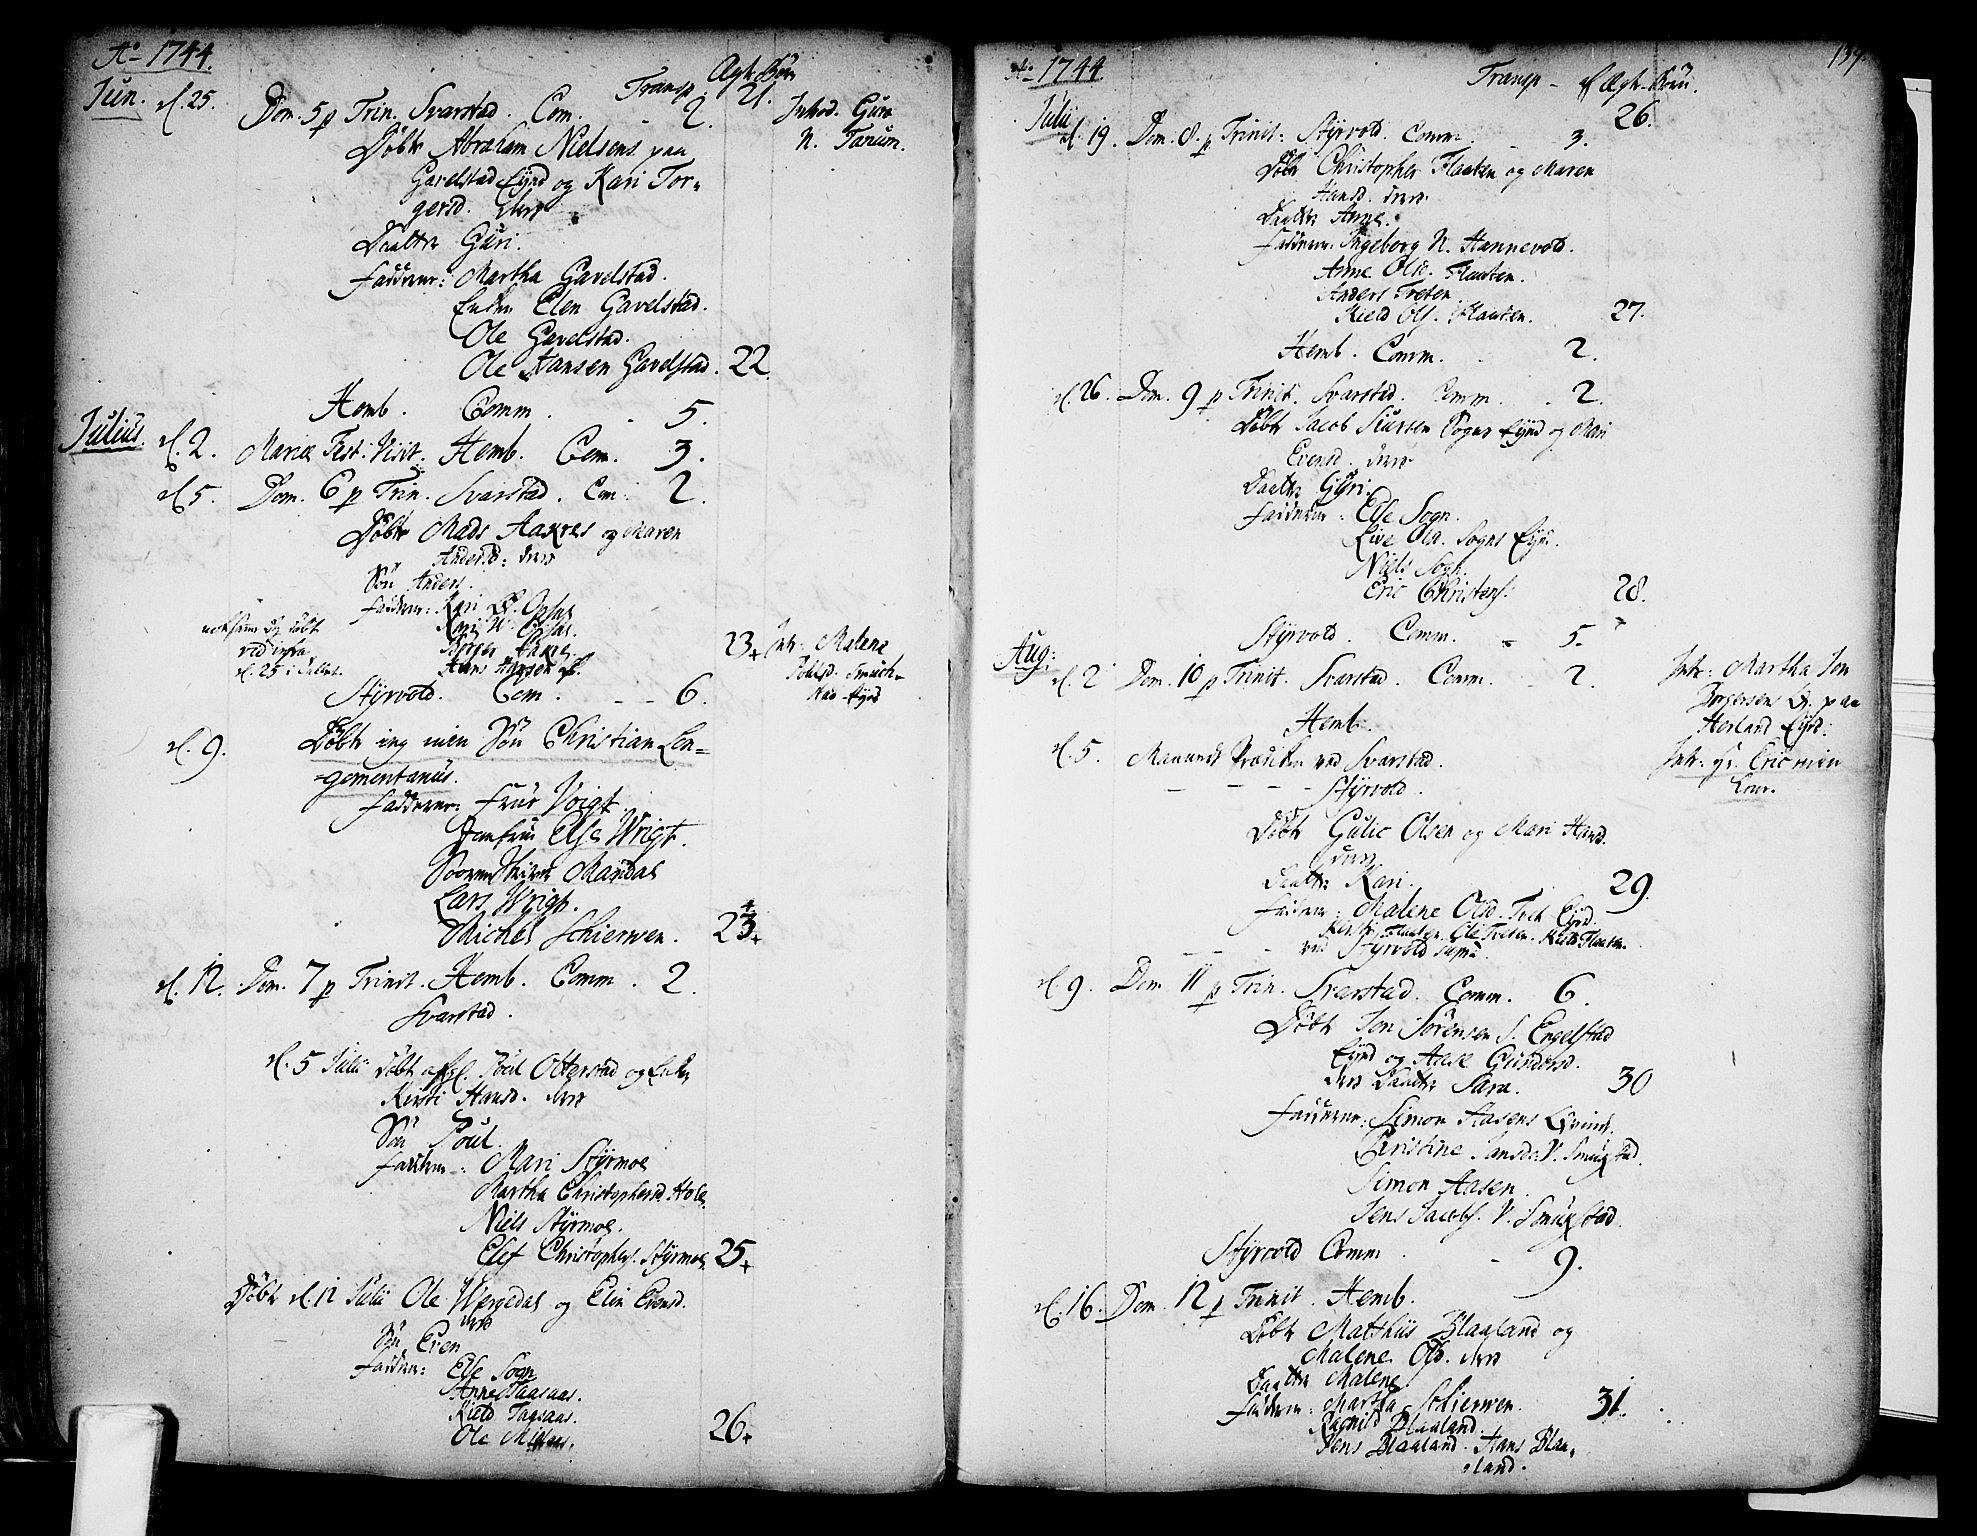 Ao 1744.
Transp. Ægt. Børn
21.
Jun. d. 25. Dom. 5 p Trin. Svarstad. Com. - 2.
Introd. Guro
N. Tanum.
Døbt Abraham Nielsens paa
Gavelstad Eynd og Kari Tor=
gersd. deres
Daatter Guri.
Faddere: Martha Gavelstad.
Enken Elen Gavelstad.
Ole Gavelstad.
Ole Hansen Gavelstad. 22.
Hemb. Comm. - 5.
Julius. d. 2. Mariæ Fest. Visit. Hemb. Com. 3.
d. 5. Dom. 6 p Trin. Svarstad. Com. 2.
Døbt Mads Aakres og Maren
Andersd: deres
Søn Anders.
Fadderne: Kari
d. 25 i
Hans Hansen
23+
Intr: Malena
Eynd
Styrvold. Com. - - 6.
d. 9. Døbt ieg min Søn Christian Lon=
=gomontanus.
Fadderne: Frue Voigt
Jomfru Else Wrigt.
Sorenskriver Mandal
Lars Wrigt.
Michel Schierven. 23+
4
d. 12. Dom. 7 p Trinit. Hemb. Comm. 2.
Svarstad.
d. 5 Julii Døbt Poul Otterstad og Enke
Kirsti Hansd. deres
Søn Poul.
Faddere: Mari Styrmoe
Martha Christophersd. Hole.
Niels Styrmoe.
Elef Christophers. Styrmoe 25+
Døbt d. 12 Julii Ole Wergedal og Elin Evensd.
deres
Søn Even
Fadderne: Else Sogn
Anne Taasaas.
Kield Taasaas.
Ole 26+
Ao 1744
Transp - Ægt-Børn.
26.
Julii d. 19. Dom. 8. p Trinit: Styrvold. Comm. - 3.
Døbt Christopher Flaaten og Maren
Hansd. deres
Daatter Anne.
Fadderne: Ingeborg N. Hannevold.
Anne Olsd. Flaaten.
Anders Treten
Kield Ols. Flaaten. 27.
Hemb. Comm. - 2.
d. 26. Dom. 9 p Trinit. Svarstad. Comm. - 2.
Døbt Jacob Siursen Sogns Eynd og Mari
Evensd. deres
Daatter Guri.
Fadderne: Else Sogn.
Live Ola. Sogns Eynd.
Niels Sogn.
Eric Christens. 28.
Styrvold. Comm. - 5.
Aug: d. 2 Dom. 10 p Trinit. Svarstad. Comm. - 2.
Intr: Martha Jon
Torgersens Q. paa
Herland Eynd:
Hemb.
d. 5. Maaneds Prædiken ved Svarstad.
Intr: Eric min
- - - - Styrvold.
Døbt Gulic Olsen og Mari Hansd.
deres
Daatter Kari. 29.
Fadderne: Malene Olsd. Eynd.
Flaaten. Ole Treten. Kield Flaaten
- - - ved Styrvold
d. 9. Dom 11 p Trin. Svarstad. Comm. 6.
Døbt Jon Sørensen S. Engelstad
Eynd og Aase Gundersd.
deres Daatter Sara. 30
Fadderne: Simon Aasens Qvinde.
Christine Jansd: V. Smukstad.
Simon Aasen.
Jens Jacobs. V. Smukstad.
Styrvold Comm. - 9.
d. 16. Dom. 12 p Trinit. Hemb.
Døbt Matthiis Blaaland og
Malene Ols. deres
Daatter Malene.
Fadderne: Martha Schierven. 31.
Ragnild Blaaland.
Jens Blaaland. Hans Blaa=
=land.